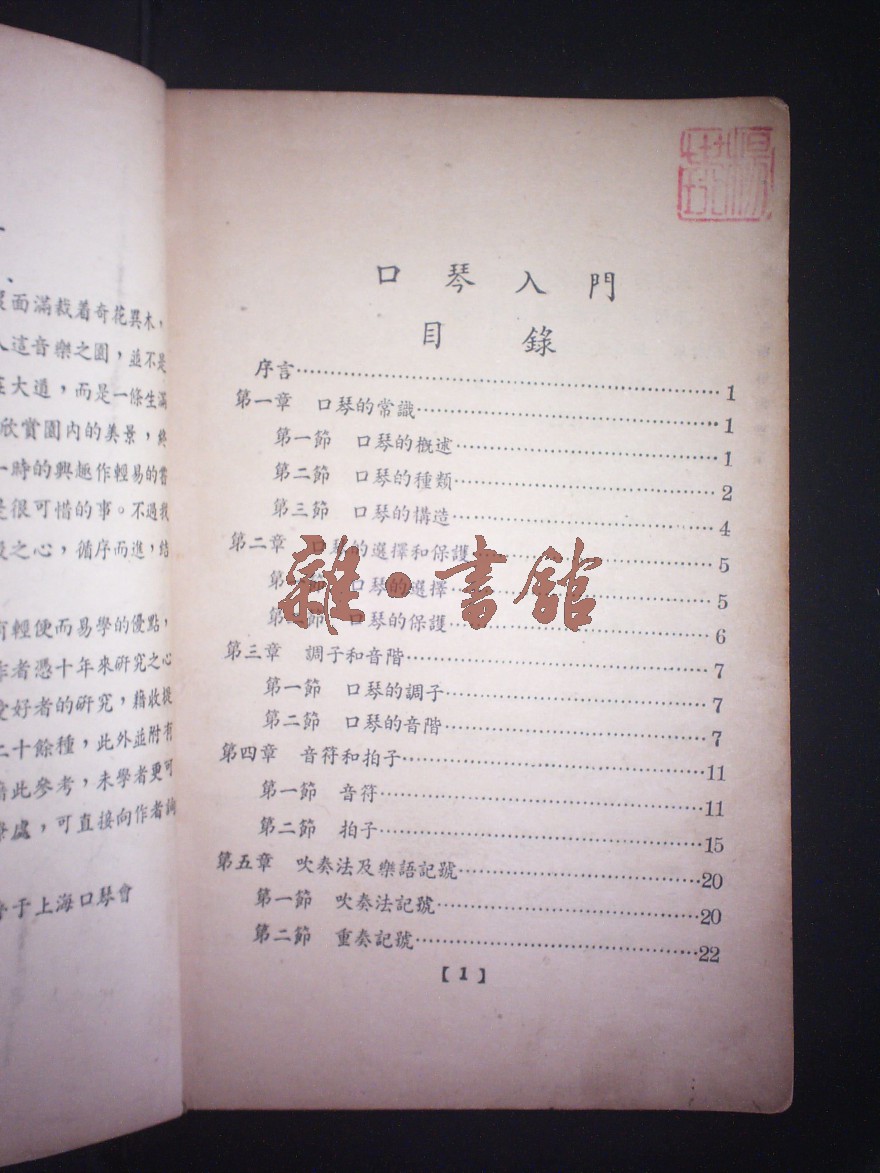 裁着奇花異木，
這音樂之園，並不是
大道，而是一條生滿
欣賞園內的美景，終
一時的興趣作輕易的嘗
是很可惜的事。不過我
之心，循序而進，結
有輕便而易學的優點，
作者憑十年來研究之心
愛好者的研究，藉收提
二十餘種，此外並附有
藉此參考，未學者更可
處，可直接向作者詢
于上海口琴會
口琴入門
目錄
序言……1
第一章 口琴的常識……1
第一節 口琴的概述……1
第二節 口琴的種類……2
第三節 口琴的構造……4
第二章 口琴的選擇和保護……5
第一節 口琴的選擇……5
第二節 口琴的保護……6
第三章 調子和音階……7
第一節 口琴的調子……7
第二節 口琴的音階……7
第四章 音符和拍子……11
第一節 音符……11
第二節 拍子……15
第五章 吹奏法及樂語記號……20
第一節 吹奏法記號……20
第二節 重奏記號……22
【1】
雜·書館